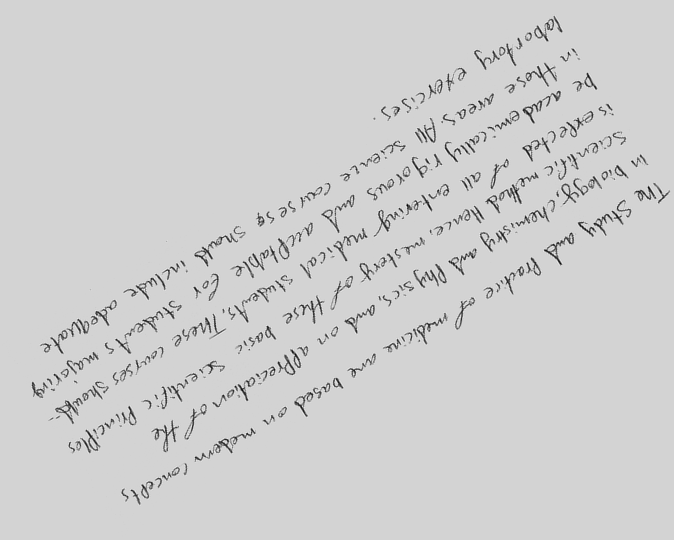 The study and practice of medicine are based on modern concepts
in biology, chemistry and physics, and on appreciation of the
scientific method. Hence, mastery of these basic scientific principles
is expected of all entering medical students. These courses should
be academically rigorous and acceptable for students majoring
in those areas. All science courses should include adequate
labortory exercises.